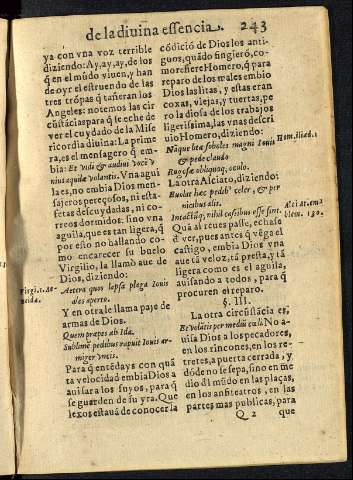 de la diuina essencia. 243
ya con vna voz terrible
diziendo: Ay, ay, ay, de los
q̃ en el mũdo viuen, y han
de oyr el estruendo de las
tres trõpas q̃ tañeran los
Angeles: notemos las cir
cũstãcias para q̃ se eche de
ver el cuydado de la Mise
ricordia diuina: La prime
ra, es el mensagero q̃ em-
bia: Et vidi & audiui vocẽ v
nius aquilæ volantis. Vna agui
la es, no embia Dios men-
sajeros perezosos, ni esta-
fetas descuydadas, ni co-
rreos dormidos: sino vna
aguila, que es tan ligera, q̃
por esso no hallando co-
mo encarecer su buelo
Virgilio, la llamò aue de
Dios, diziendo:
Virgi. 1. Ae-
neida.
Aeterea quos lapsa plaga Iouis
ales aperto.
Y en otra le llama paje de
armas de Dios.
Quem præpes ab Ida.
Sublimẽ pedibus rapuit Iouis ar-
miger vncis.
Para q̃ entẽdays con quã
ta velocidad embia Dios a
auisar a los suyos, para q̃
se guarden de su yra. Que
lexos estaua de conocer la
cõdiciõ de Dios los anti-
guos, quãdo fingierõ, co-
mo refiere Homero, q̃ para
reparo de los males embio
Dios las litas, y estas eran
coxas, viejas, y tuertas, pe
ro la diosa de los trabajos
ligerissima, las vnas descri
uio Homero, diziendo:
Nãque hæ soboles magni Iouis
& pede claudo
Hom. iliad. 1
Rugosæ obliquæq; oculo.
La otra Alciato, diziendo:
Euolat hæc pedib9 celer, & per
nicibus alis.
Intactũq; nihil casibus esse sint.
Alciat. em
blem. 130.
Quã al reues passe, echase
d̃ ver, pues antes q̃ vẽga el
castigo, embia Dios vna
aue tã veloz, tã presta, y tã
ligera como es el aguila,
auisando a todos, para q̃
procuren el reparo.
§. III.
La otra circũstãcia es;
Et volãtis per mediũ cæli. No a-
uisa Dios a los pecadores,
en los rincones, en los re-
tretes, a puerta cerrada, y
dõde no se sepa, sino en me
dio d̃l mũdo en las plaças,
en los anfiteatros, en las
partes mas publicas, para
Q 2 que